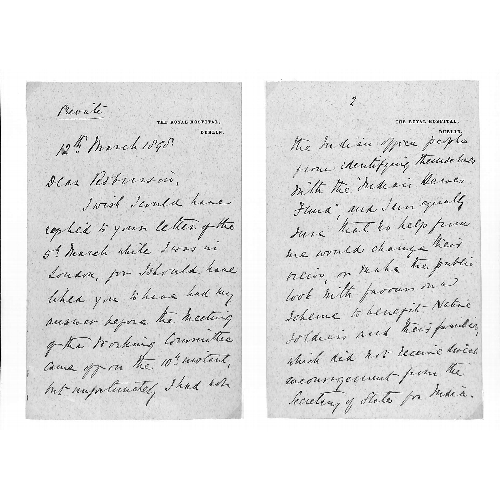 Private
THE ROYAL HOSPITAL,
DUBLIN.
12th March 1898.
Dear Robinson,
I wish I could have
replied to your letter of the
5th March while I was in
London, for I should have
liked you to have had my
answer before the Meeting
of the Working Committee
came off on the 10th instant,
but unfortunately I had not
2
THE ROYAL HOSPITAL,
DUBLIN.
the Indian office people
from identifying themselves
with the "Indian Heroes
Fund", and I am equally
sure that no help from
me would change their
views, or make the public
look with favour on a
scheme to benefit Native
Soldiers and their families
which did not receive
encouragement from the
Secretary of State for India.